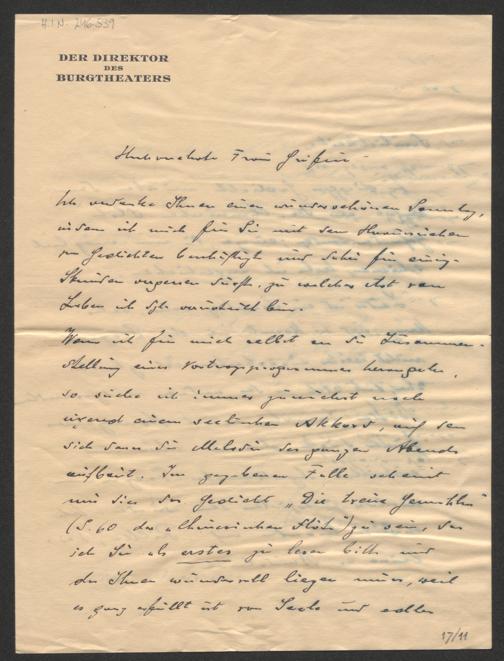 H.I.N. 246.539
DER DIREKTOR
DES
BURGTHEATERS
Hochverehrte Frau Gräfin
Ich verdanke Ihnen einen wunderschönen Sonntag,
indem ich mich für Sie mit dem Heraussuchen
von Gedichten beschäftigte und dabei für einige
Stunden vergessen durfte, zu welcher Art von
Leben ich verurteilt bin.
Wenn ich für mich selbst an die Zusammen-
stellung eines Vortragsprogrammes herangehe,
so suche ich immer zunächst nach
irgend einem seelischen Akkord, auf dem
sich dann die Melodie des ganzen Abends
aufbaut. Im gegebenen Falle scheint
mir dies das Gedicht „Die treue
(S. 60 der „chinesischen Flöte") zu sein, das
ich Sie als erstes zu lesen bitte und
das Ihnen wundervoll liegen muss, weil
es ganz erfüllt ist von Seele und edler
17/11